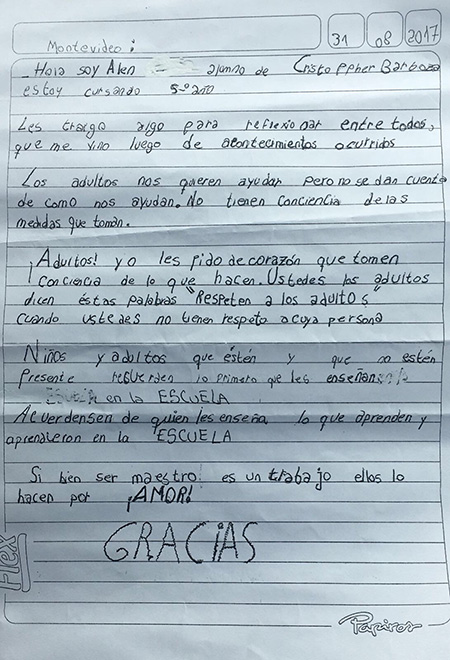 Montevideo: 31 08 2017
Hola soy Alen alumno de Cristopher Barboza
estoy cursando 5º año
Les traigo algo para reflexionar entre todos,
que me vino luego de acontecimientos ocurridos
Los adultos nos quieren ayudar pero no se dan cuenta
de como nos ayudan. No tienen conciencia de las
medidas que toman.
¡Adultos! yo les pido de corazón que tomen
conciencia de lo que hacen. Ustedes los adultos
dicen éstas palabras "Respeten a los adultos"
cuando ustedes no tienen respeto a cuya persona
Niños y adultos que estén y que no estén
presente recuerden lo primero que les enseñan
en la ESCUELA
Acuerdensen de quien les enseña lo que aprenden y
aprendieron en la ESCUELA
Si bien ser maestro es un trabajo ellos lo
hacen por ¡AMOR!
GRACIAS
Flex
Papiros